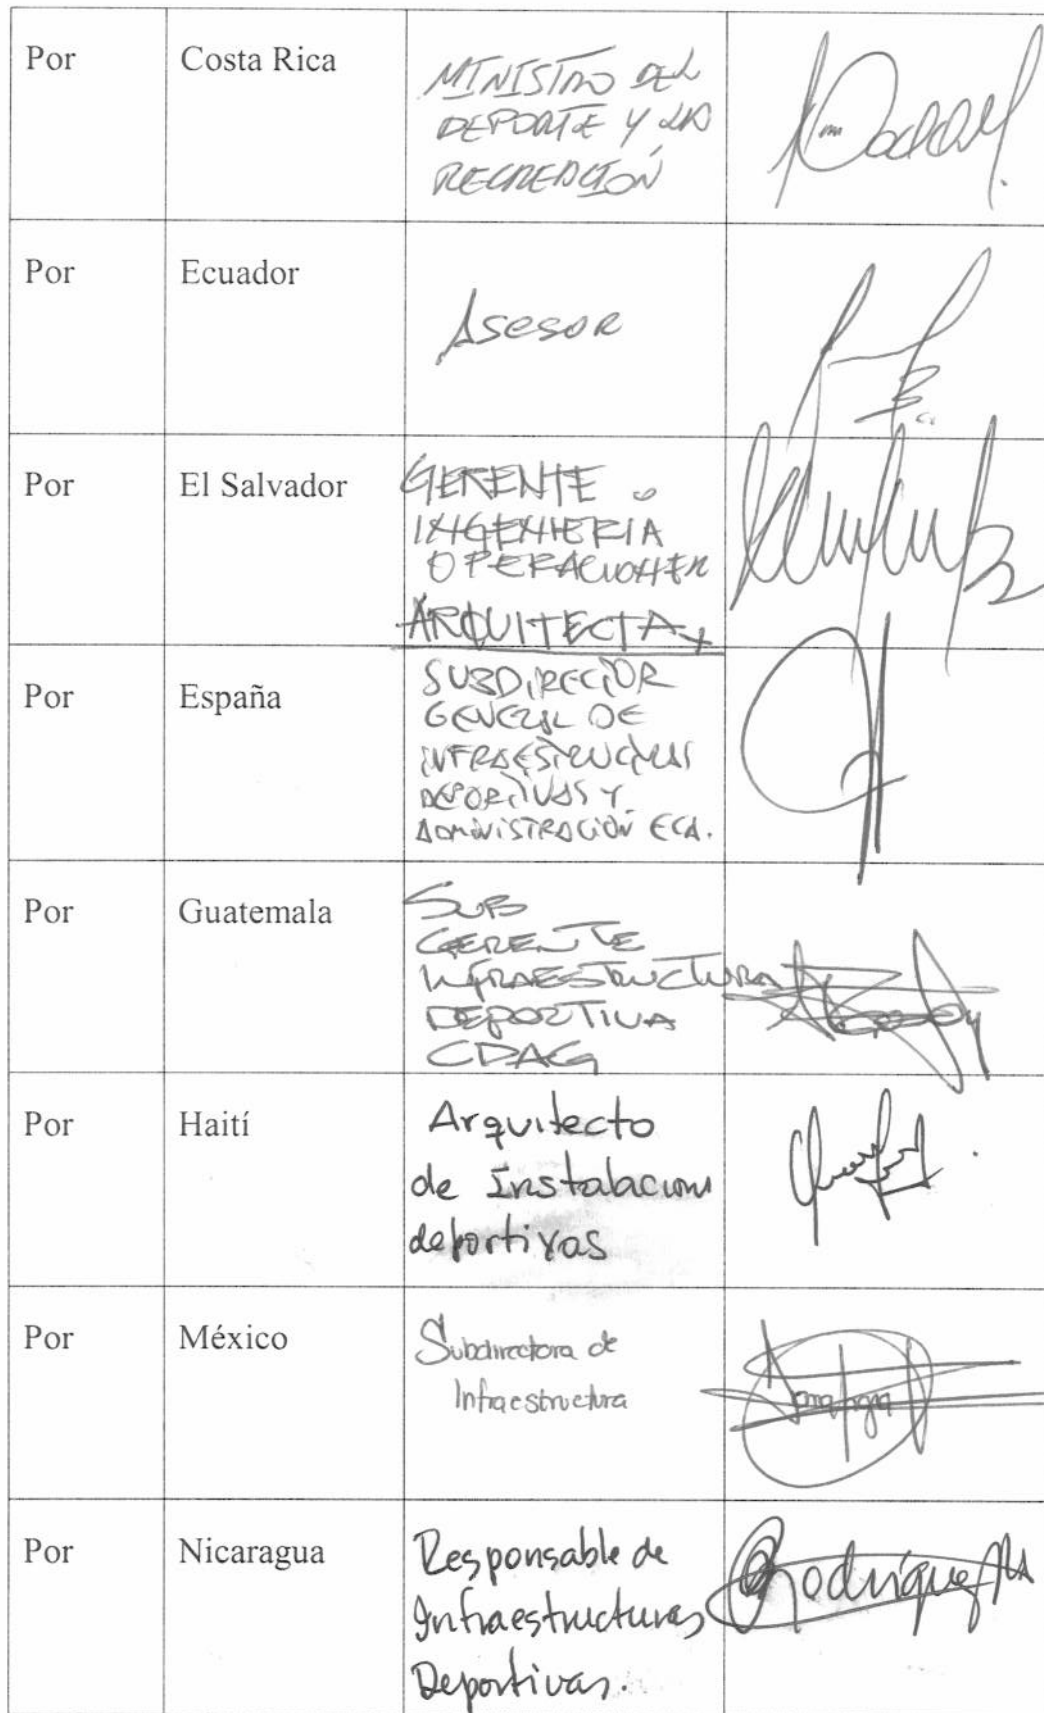 Por Costa Rica MINISTRO DEL
DEPORTE Y LA
RECREACIÓN
Por Ecuador Asesor
Por El Salvador GERENTE
INGENIERIA
OPERACIONES
ARQUITECTA
Por España SUBDIRECTOR
GENERAL DE
INFRAESTRUCTURAS
DEPORTIVAS Y
ADMINISTRACIÓN ECA.
Por Guatemala SUB
GERENTE
INFRAESTRUCTURA
DEPORTIVA
CDAG
Por Haití Arquitecto
de Instalacions
deportivas
Por México Subdirectora de
Infraestructura
Por Nicaragua Responsable de Rodríguez
Infraestructuras
Deportivas.